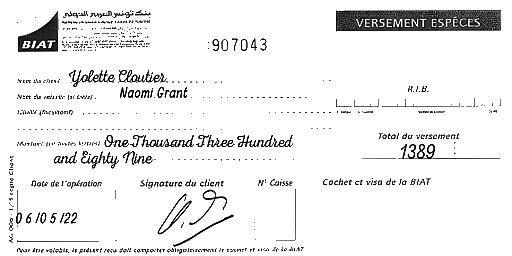 بنك تونس العربي الدولي
BIAT
VERSEMENT ESPÈCES
:907043
Nom du client Yolette Cloutier
Nom du verseur (si tiers) Naomi Grant
R.I.B.
Libellé (facultatif)
Montant (en toutes lettres) One Thousand Three Hundred
and Eighty Nine
Total du versement
1389
Date de l'opération
Signature du client
N° Caisse
Cachet et visa de la BIAT
06/05/22
Pour être valable, le présent reçu doit comporter obligatoirement le cachet et visa de la BIAT